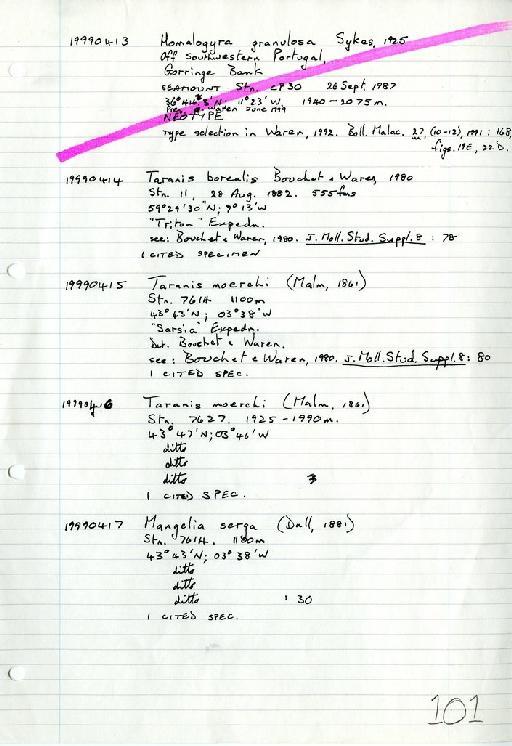 19990413 Homalogyra granulosa Sykes, 1925
Off Southwestern Portugal,
Gorringe Bank
SEAMOUNT Stn. CP30 26 Sept. 1987
N 11°23'W. 1940-2075m.
NEOTYPE
Type selection in Waren, 1992. Boll. Malac. 27 (10-12), 1991 : 168,
figs. 19E, 22D.
19990414 Taranis borealis Bouchet & Waren, 1980
Stn. 11, 28 Aug. 1882. 555fms
59°29'30"N; 9°13'W
"Triton" Expedn.
see: Bouchet & Waren, 1980. J. Moll. Stud. Suppl. 8 : 78
1 CITED SPECIMEN
19990415 Taranis moerchi (Malm, 1861)
Stn. 7614 1100m
43°43'N; 03°38'W
"Sarsia" Expedn.
Det. Bouchet & Waren.
see: Bouchet & Waren, 1980. J. Moll. Stud. Suppl. 8: 80
1 CITED SPEC.
19990416 Taranis moerchi (Malm, 1861)
Stn. 7627. 1925-1990m.
43°47'N; 03°46'W
ditto
ditto
ditto
1 CITED SPEC.
19990417 Mangelia serga (Dall, 1881)
Stn. 7614. 1100m
43°43'N; 03°38'W
ditto
ditto
ditto : 30
1 CITED SPEC.
101